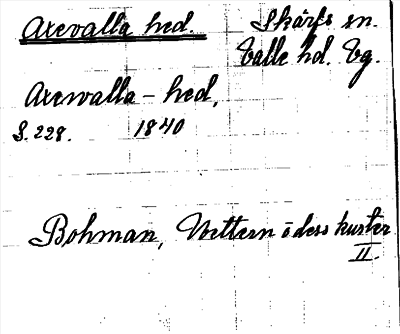 Axevalla hed. Skärfs sn.
Valle hd. Vg.
Axewalla - hed,
S. 228. 1840
Bohman, Wettern o dess kuster
II.